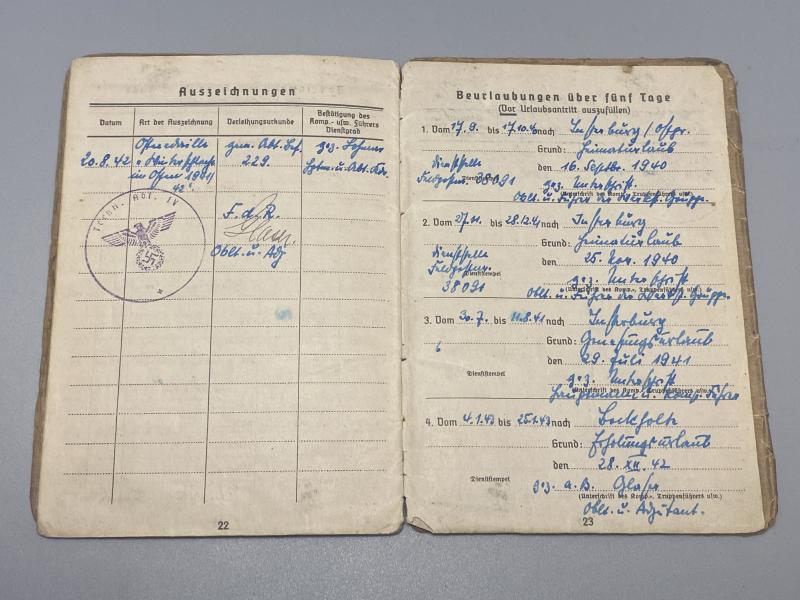 Auszeichnungen
Datum
Art der Auszeichnung
Verleihungsurkunde
Bestätigung des
Komp.- usw. Führers
Dienstgrad
20.8.42
Ostmedaille
"Winterschlacht
im Osten 1941/
42"
229.
gez.
Hptm. u. Abt. Kdr.
F. d. R.
Oblt. u. Adj
Abt. IV
22
Beurlaubungen über fünf Tage
(Vor Urlaubsantritt auszufüllen)
1. Vom 17.9. bis 17.10.4 nach Insterburg/Ostpr.
Grund: Heimaturlaub
den 16. Septbr. 1940
Dienststelle
Feldpostnr. 38091
Dienststempel
gez. Unterschrift
(Unterschrift des Komp.-, Truppenführers usw.)
Oblt. u. Führer der Werkst. Gruppe.
2. Vom 27.11. bis 28.12.4 nach Insterburg
Grund: Heimaturlaub
den 25. Nov. 1940
Dienststelle
Feldpostnr.
Dienststempel
38091
gez. Unterschrift
(Unterschrift des Komp.-, Truppenführers usw.)
Oblt. u. Führer der Werkst. Gruppe.
3. Vom 30.7. bis 11.8.41 nach Insterburg
Grund: Genesungsurlaub
den 29. Juli 1941
Dienststempel
gez. Unterschrift
(Unterschrift des Komp.-, Truppenführers usw.)
Hauptmann u. Komp. Führer
4. Vom 4.1.43 bis 25.1.43 nach Bockholte
Grund: Erholungsurlaub
den 28. XII. 42
Dienststempel
gez. a. B. Glaser
(Unterschrift des Komp.-, Truppenführers usw.)
Oblt. u. Adjutant.
23